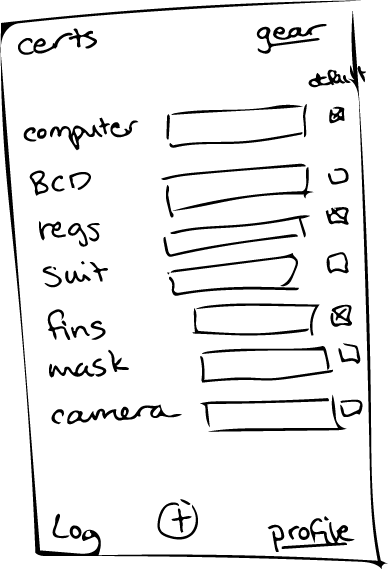 certs gear
default
computer
BCD
regs
suit
fins
mask
camera
Log + profile